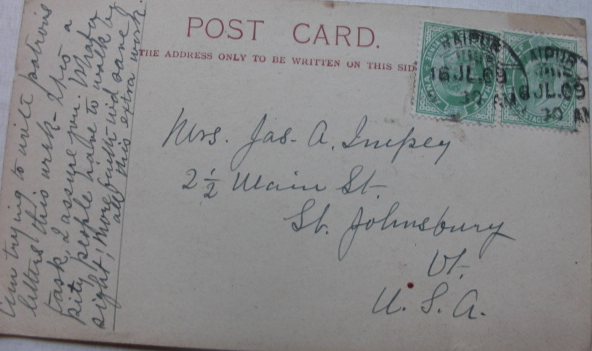 POST CARD.
THE ADDRESS ONLY TO BE WRITTEN ON THIS SID
RAIPUR
16 JL.09
AIPUR
6 JL.09
10 AM
Mrs. Jas. A. Impey
2½ Main St.
St. Johnsbury
Vt.
U. S. A.
Am trying to write patrons
letters this week - It is a
task, I assure you. What a
pity people have to walk by
sight, more faith wid save
all this extra work.